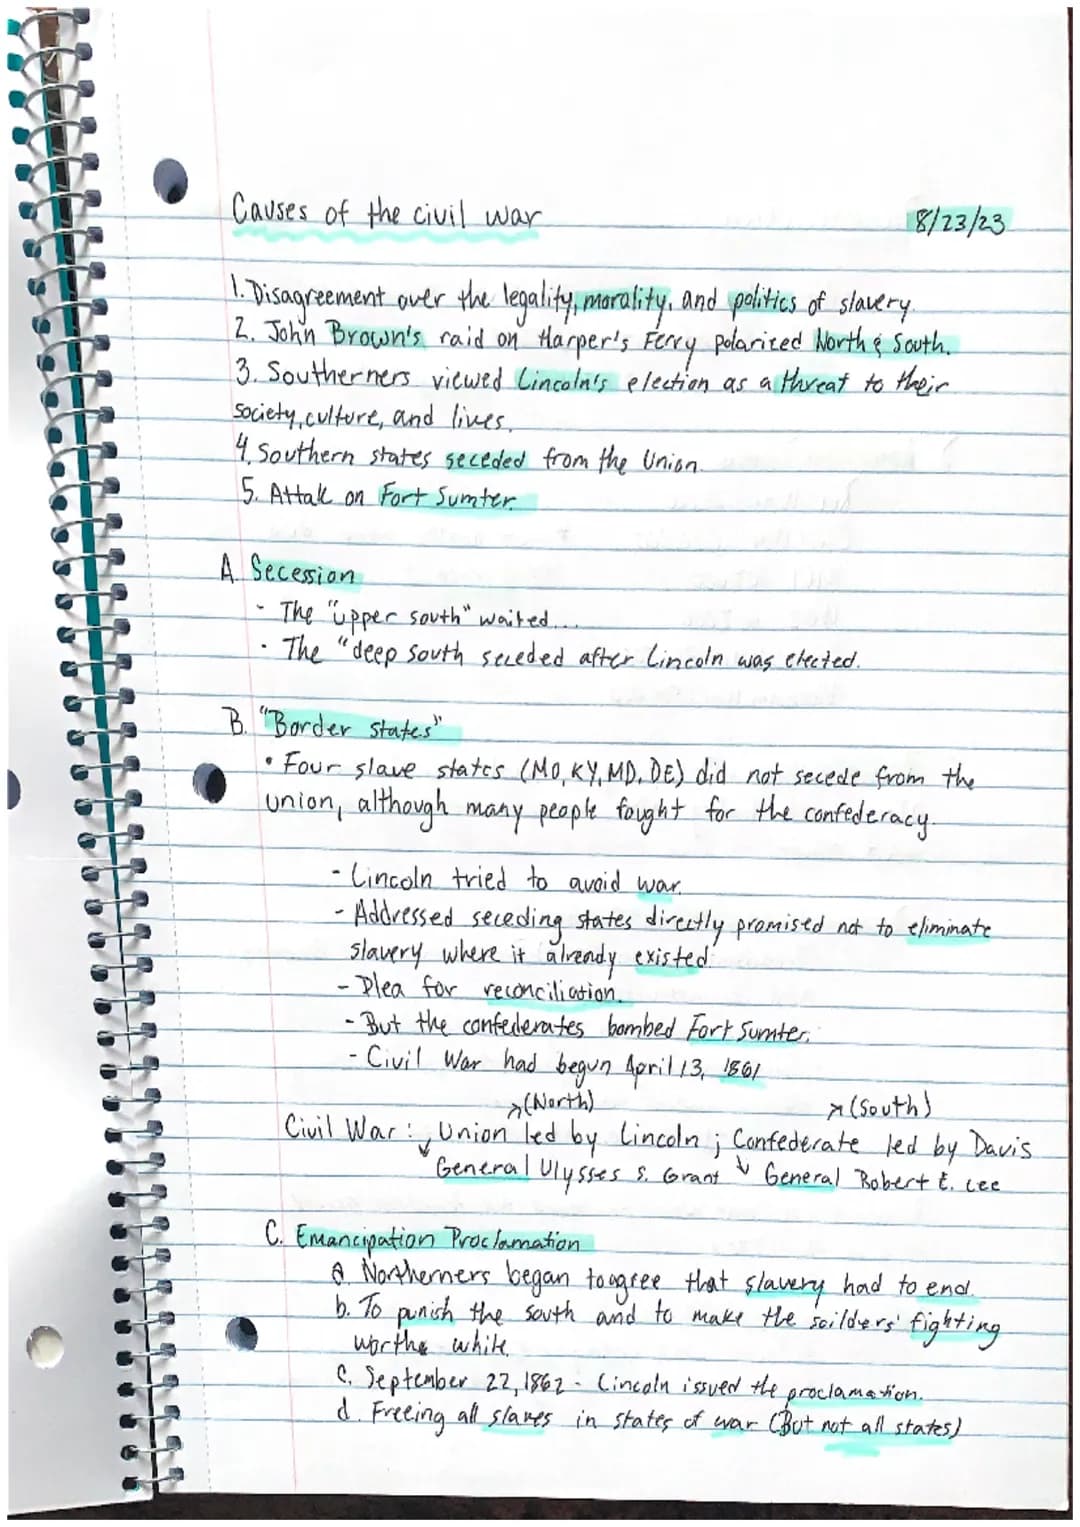 Causes of the civil war 8/23/23
1. Disagreement over the legality, morality, and politics of slavery.
2. John Brown's raid on Harper's Ferry polarized North & South.
3. Southerners viewed Lincoln's election as a threat to their
society, culture, and lives.
4. Southern states seceded from the Union.
5. Attak on Fort Sumter.
A. Secession
- The "upper south" waited...
· The "deep south seceded after Lincoln was elected.
B. "Border states"
• Four slave states (MO, KY, MD, DE) did not secede from the
union, although many people fought for the confederacy.
- Lincoln tried to avoid war.
- Addressed seceding states directly promised not to eliminate
slavery where it already existed.
- Plea for reconciliation.
- But the confederates bombed Fort Sumter.
- Civil War had begun April 13, 1861
↗(North) ↗(South)
Civil War: Union led by Lincoln; Confederate led by Davis
↓ General Ulysses S. Grant ↓ General Robert E. Lee
C. Emancipation Proclamation
a. Northerners began to agree that slavery had to end.
b. To punish the south and to make the soilders' fighting
worth while.
c. September 22, 1862 - Lincoln issued the proclamation.
d. Freeing all slaves in states of war (But not all states)